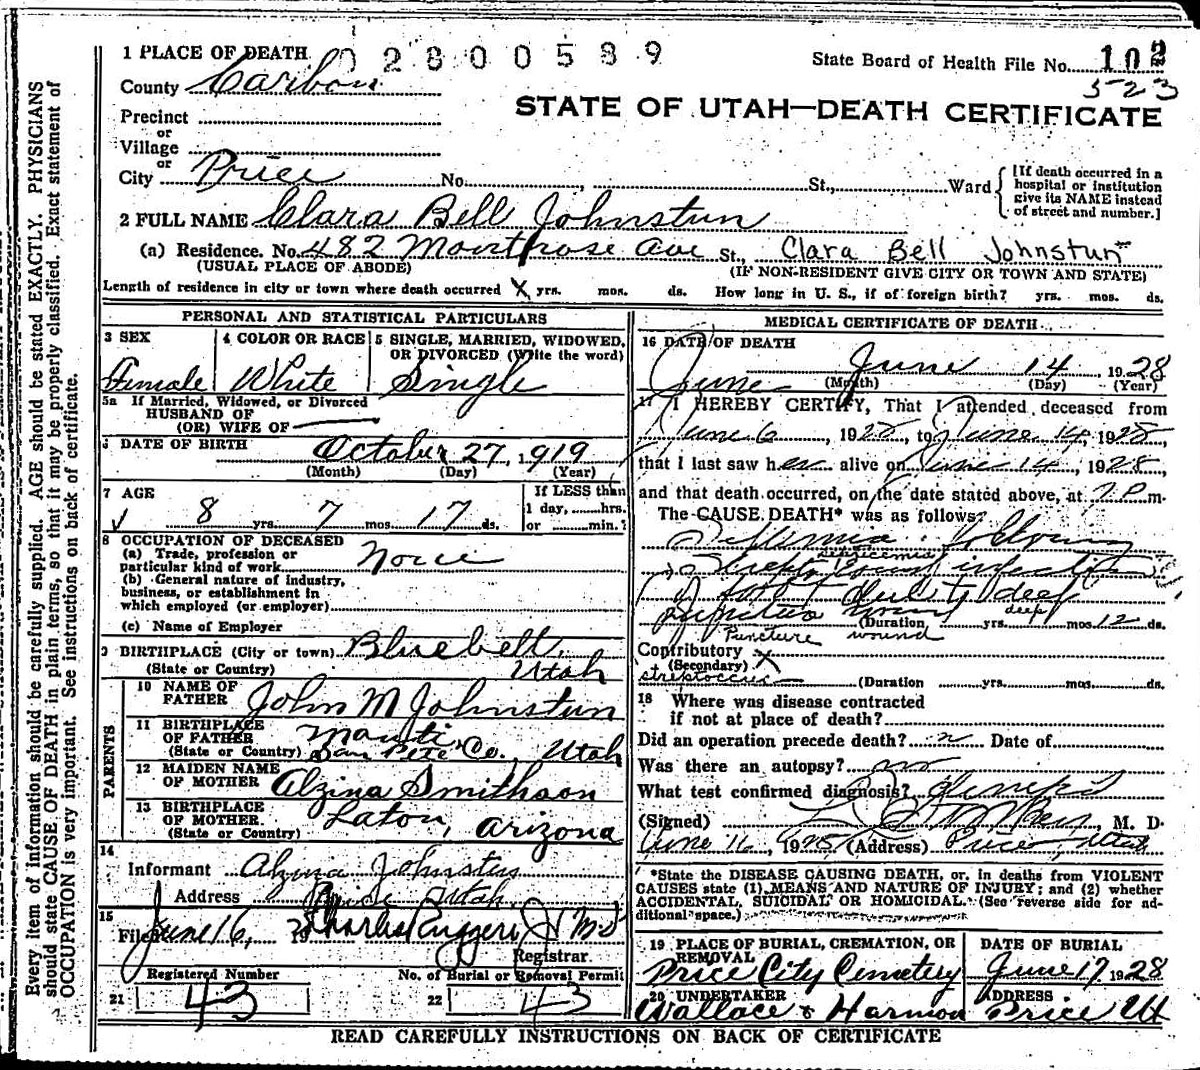 1 PLACE OF DEATH 02800589
State Board of Health File No. 102
523
County Carbon
STATE OF UTAH—DEATH CERTIFICATE
Precinct
or
Village
or
City Price No. St., Ward
[If death occurred in a hospital or institution give its NAME instead of street and number.]
2 FULL NAME Clara Bell Johnstun
(a) Residence. No. 482 Montrose Ave St., Clara Bell Johnstun
(USUAL PLACE OF ABODE) (IF NON-RESIDENT GIVE CITY OR TOWN AND STATE)
Length of residence in city or town where death occurred X yrs. mos. ds. How long in U. S., if of foreign birth? yrs. mos. ds.
PERSONAL AND STATISTICAL PARTICULARS
3 SEX 4 COLOR OR RACE 5 SINGLE, MARRIED, WIDOWED,
OR DIVORCED (Write the word)
Female White Single
5a If Married, Widowed, or Divorced
HUSBAND OF
(OR) WIFE OF
6 DATE OF BIRTH October 27, 1919
(Month) (Day) (Year)
7 AGE If LESS than
1 day, hrs.
8 yrs. 7 mos. 17 ds. or min.?
8 OCCUPATION OF DECEASED
(a) Trade, profession or
particular kind of work None
(b) General nature of industry,
business, or establishment in
which employed (or employer)
(c) Name of Employer
9 BIRTHPLACE (City or town) Bluebell,
(State or Country) Utah
PARENTS
10 NAME OF
FATHER John M Johnstun
11 BIRTHPLACE
OF FATHER Manti
(State or Country) San Pete Co., Utah
12 MAIDEN NAME
OF MOTHER Alzina Smithson
13 BIRTHPLACE
OF MOTHER.
(State or Country) Laton, Arizona
14
Informant Alzina Johnstun
Address Price Utah
15
Filed June 16, 19 Charles Ruggeri, J MD
Registrar.
Registered Number No. of Burial or Removal Permit
21 43 22 43
MEDICAL CERTIFICATE OF DEATH
16 DATE OF DEATH
June June 14 1928
(Month) (Day) (Year)
17 I HEREBY CERTIFY, That I attended deceased from
June 6, 1928, to June 14, 1928,
that I last saw her alive on June 14, 1928,
and that death occurred, on the date stated above, at 7 P m.
The CAUSE DEATH* was as follows:
septicemia
infection
deep
deep
(Duration yrs. mos. 12 ds.
Puncture wound
Contributory X
(Secondary)
(Duration yrs. mos. ds.
18 Where was disease contracted
if not at place of death?
Did an operation precede death? n Date of
Was there an autopsy? no
What test confirmed diagnosis?
(Signed) , M. D.
June 16, 1928 (Address) Price, Utah
*State the DISEASE CAUSING DEATH, or, in deaths from VIOLENT
CAUSES state (1) MEANS AND NATURE OF INJURY; and (2) whether
ACCIDENTAL, SUICIDAL OR HOMICIDAL. (See reverse side for ad-
ditional space.)
19 PLACE OF BURIAL, CREMATION, OR
REMOVAL DATE OF BURIAL
Price City Cemetery June 17 1928
20 UNDERTAKER ADDRESS
Wallace & Harmon Price Ut
READ CAREFULLY INSTRUCTIONS ON BACK OF CERTIFICATE
Every item of information should be carefully supplied. AGE should be stated EXACTLY. PHYSICIANS
should state CAUSE OF DEATH in plain terms, so that it may be properly classified. Exact statement of
OCCUPATION is very important. See instructions on back of certificate.